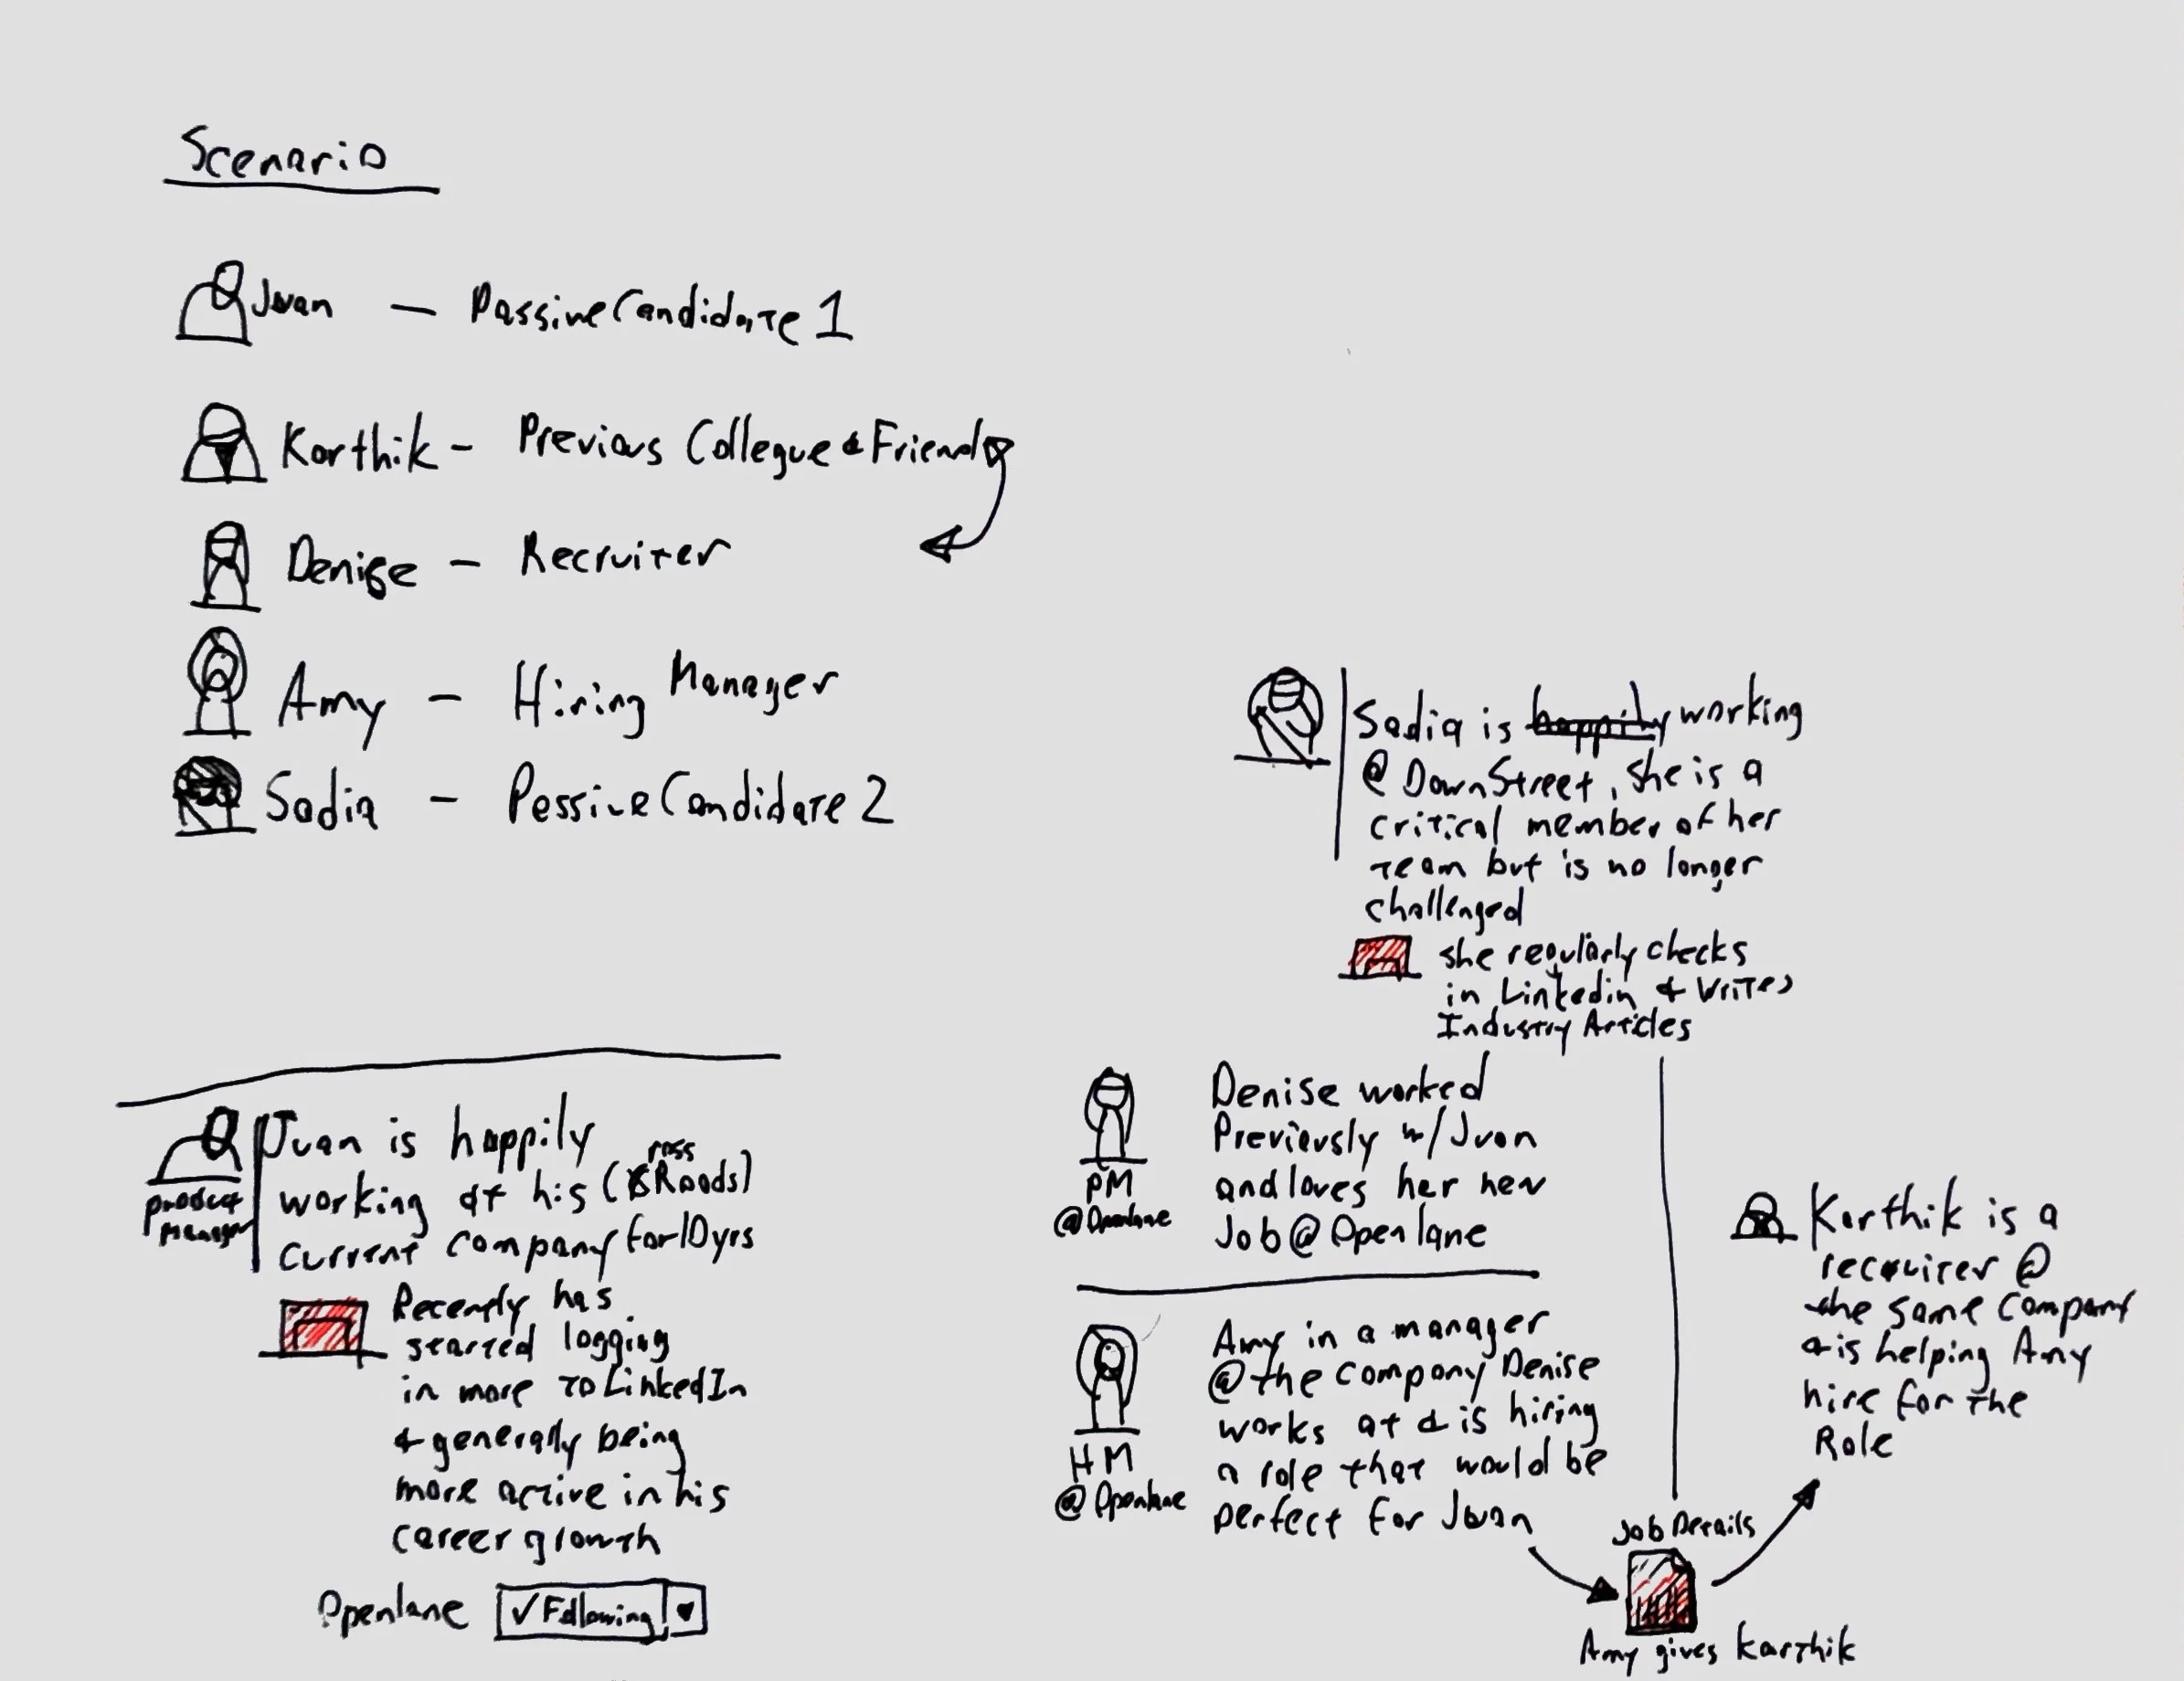 Scenario
Juan — Passive Candidate 1
Karthik - Previous Collegue & Friend
Denise - Recruiter
Amy - Hiring Manager
Sadia - Passive Candidate 2
Sadia is happily working
@ DownStreet, she is a
critical member of her
team but is no longer
challenged
she regularly checks
in Linkedin & writes
Industry Articles
Juan is happily
working at his (ross Roads)
current company for 10yrs
product
manager
Recently has
started logging
in more to LinkedIn
& generally being
more active in his
career growth
Openlane ✓ Following
Denise worked
Previously w/ Juan
and loves her new
Job @ Openlane
PM
@ Openlane
Amy in a manager
@ the company Denise
works at & is hiring
a role that would be
perfect for Juan
HM
@ Openlane
Job Details
Amy gives Karthik
Karthik is a
recruiter @
the same company
& is helping Amy
hire for the
Role